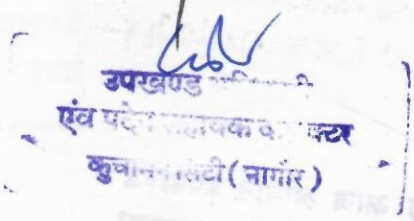 उपखण्ड
एंव पदेन सहायक कलक्टर
कुचामन सिटी ( नागौर )